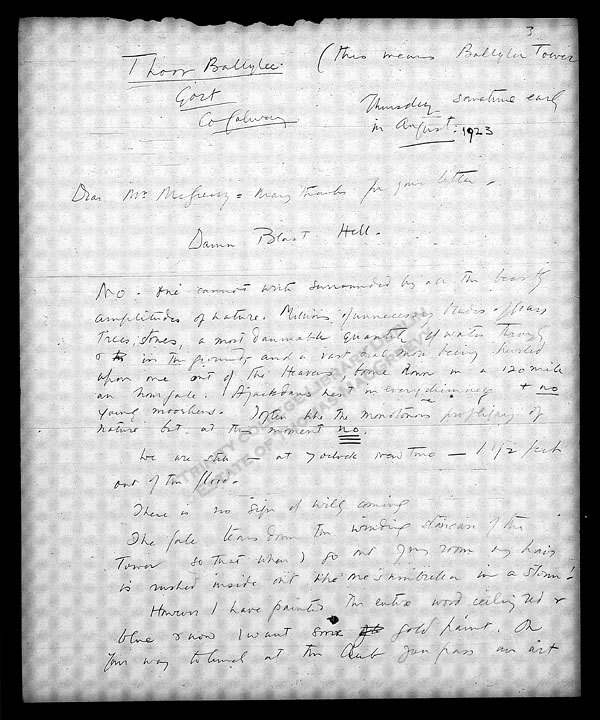 3
Thoor Ballylee. (this means Ballylee Tower
Gort
Co Galway
Thursday sometime early
in August. 1923
Dear Mr McGreevy = Many thanks for your letter.
Damn Blast Hell.
No. One cannot write surrounded by all the beastly
amplitudes of nature. Millions of unnecessary blades of grass
trees, stones, a most damnable quantity of water through
& in the ground and a vast deal more being hurled
upon one out of the Heavens borne down on a 120 mile
an hour gale. A jackdaws nest in every chimney & no
young moorhens. I often like the monotonous profligacy of
nature but at this moment no.
We are still — at 7 oclock new time — 1 1/2 feet
out of the floor.
There is no sign of Willy coming
The gale tears down the winding staircase of the
Tower so that when I go out of my room my hair
is rushed inside out like one's umbrella in a storm!
However I have painted the entire wood ceiling red &
blue & now I want some gold paint. On
your way to lunch at the Club you pass an art
TRINITY COLLEGE LIBRARY DUBLIN
ESTATE OF